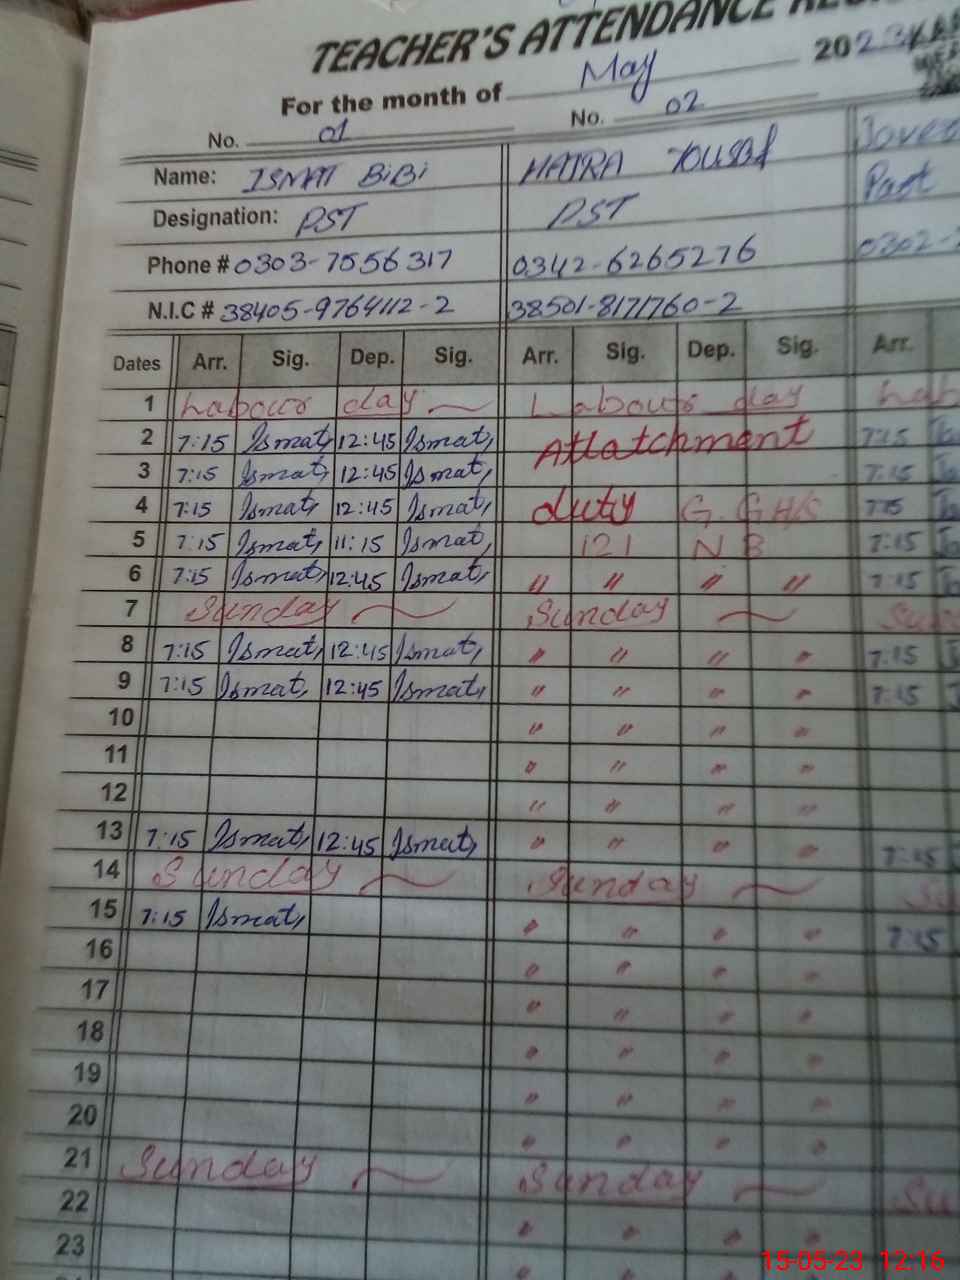 TEACHER'S ATTENDANCE
For the month of May 2023
No. 01 No. 02
Name: ISMAT BiBi HAJRA Yousaf
Designation: PST PST
Phone # 0303-7556317 0342-6265276 0302-
N.I.C # 38405-9764112-2 38501-8171760-2
Dates Arr. Sig. Dep. Sig. Arr. Sig. Dep. Sig. Arr.
1 Labour day Labour day
2 7:15 Ismat, 12:45 Ismat, Attatchment 7:15
3 7:15 Ismat, 12:45 Ismat, 7:15
4 7:15 Ismat, 12:45 Ismat, duty G. GH/S 7:15
5 7:15 Ismat, 11:15 Ismat, 121 NB 7:15
6 7:15 Ismat, 12:45 Ismat, " " " " 7:15
7 Sunday Sunday
8 7:15 Ismat, 12:45 Ismat, " " " " 7:15
9 7:15 Ismat, 12:45 Ismat, " " " " 7:15
10 " " " "
11 " " " "
12 " " " "
13 7:15 Ismat, 12:45 Ismat, " " " " 7:15
14 Sunday Sunday
15 7:15 Ismat, " " " " 7:15
16 " " " "
17 " " " "
18 " " " "
19 " " " "
20 " " " "
21 Sunday Sunday Su
22 " " " "
23 " " " "
15-05-23 12:16